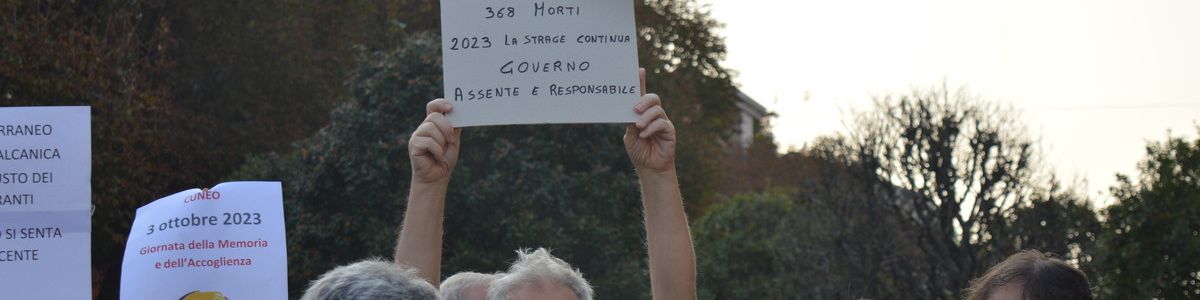 RRANEO
ALCANICA
USTO DEI
RANTI
O SI SENTA
CENTE
CUNEO
3 ottobre 2023
Giornata della Memoria
e dell'Accoglienza
368 MORTI
2023 LA STRAGE CONTINUA
GOVERNO
ASSENTE E RESPONSABILE